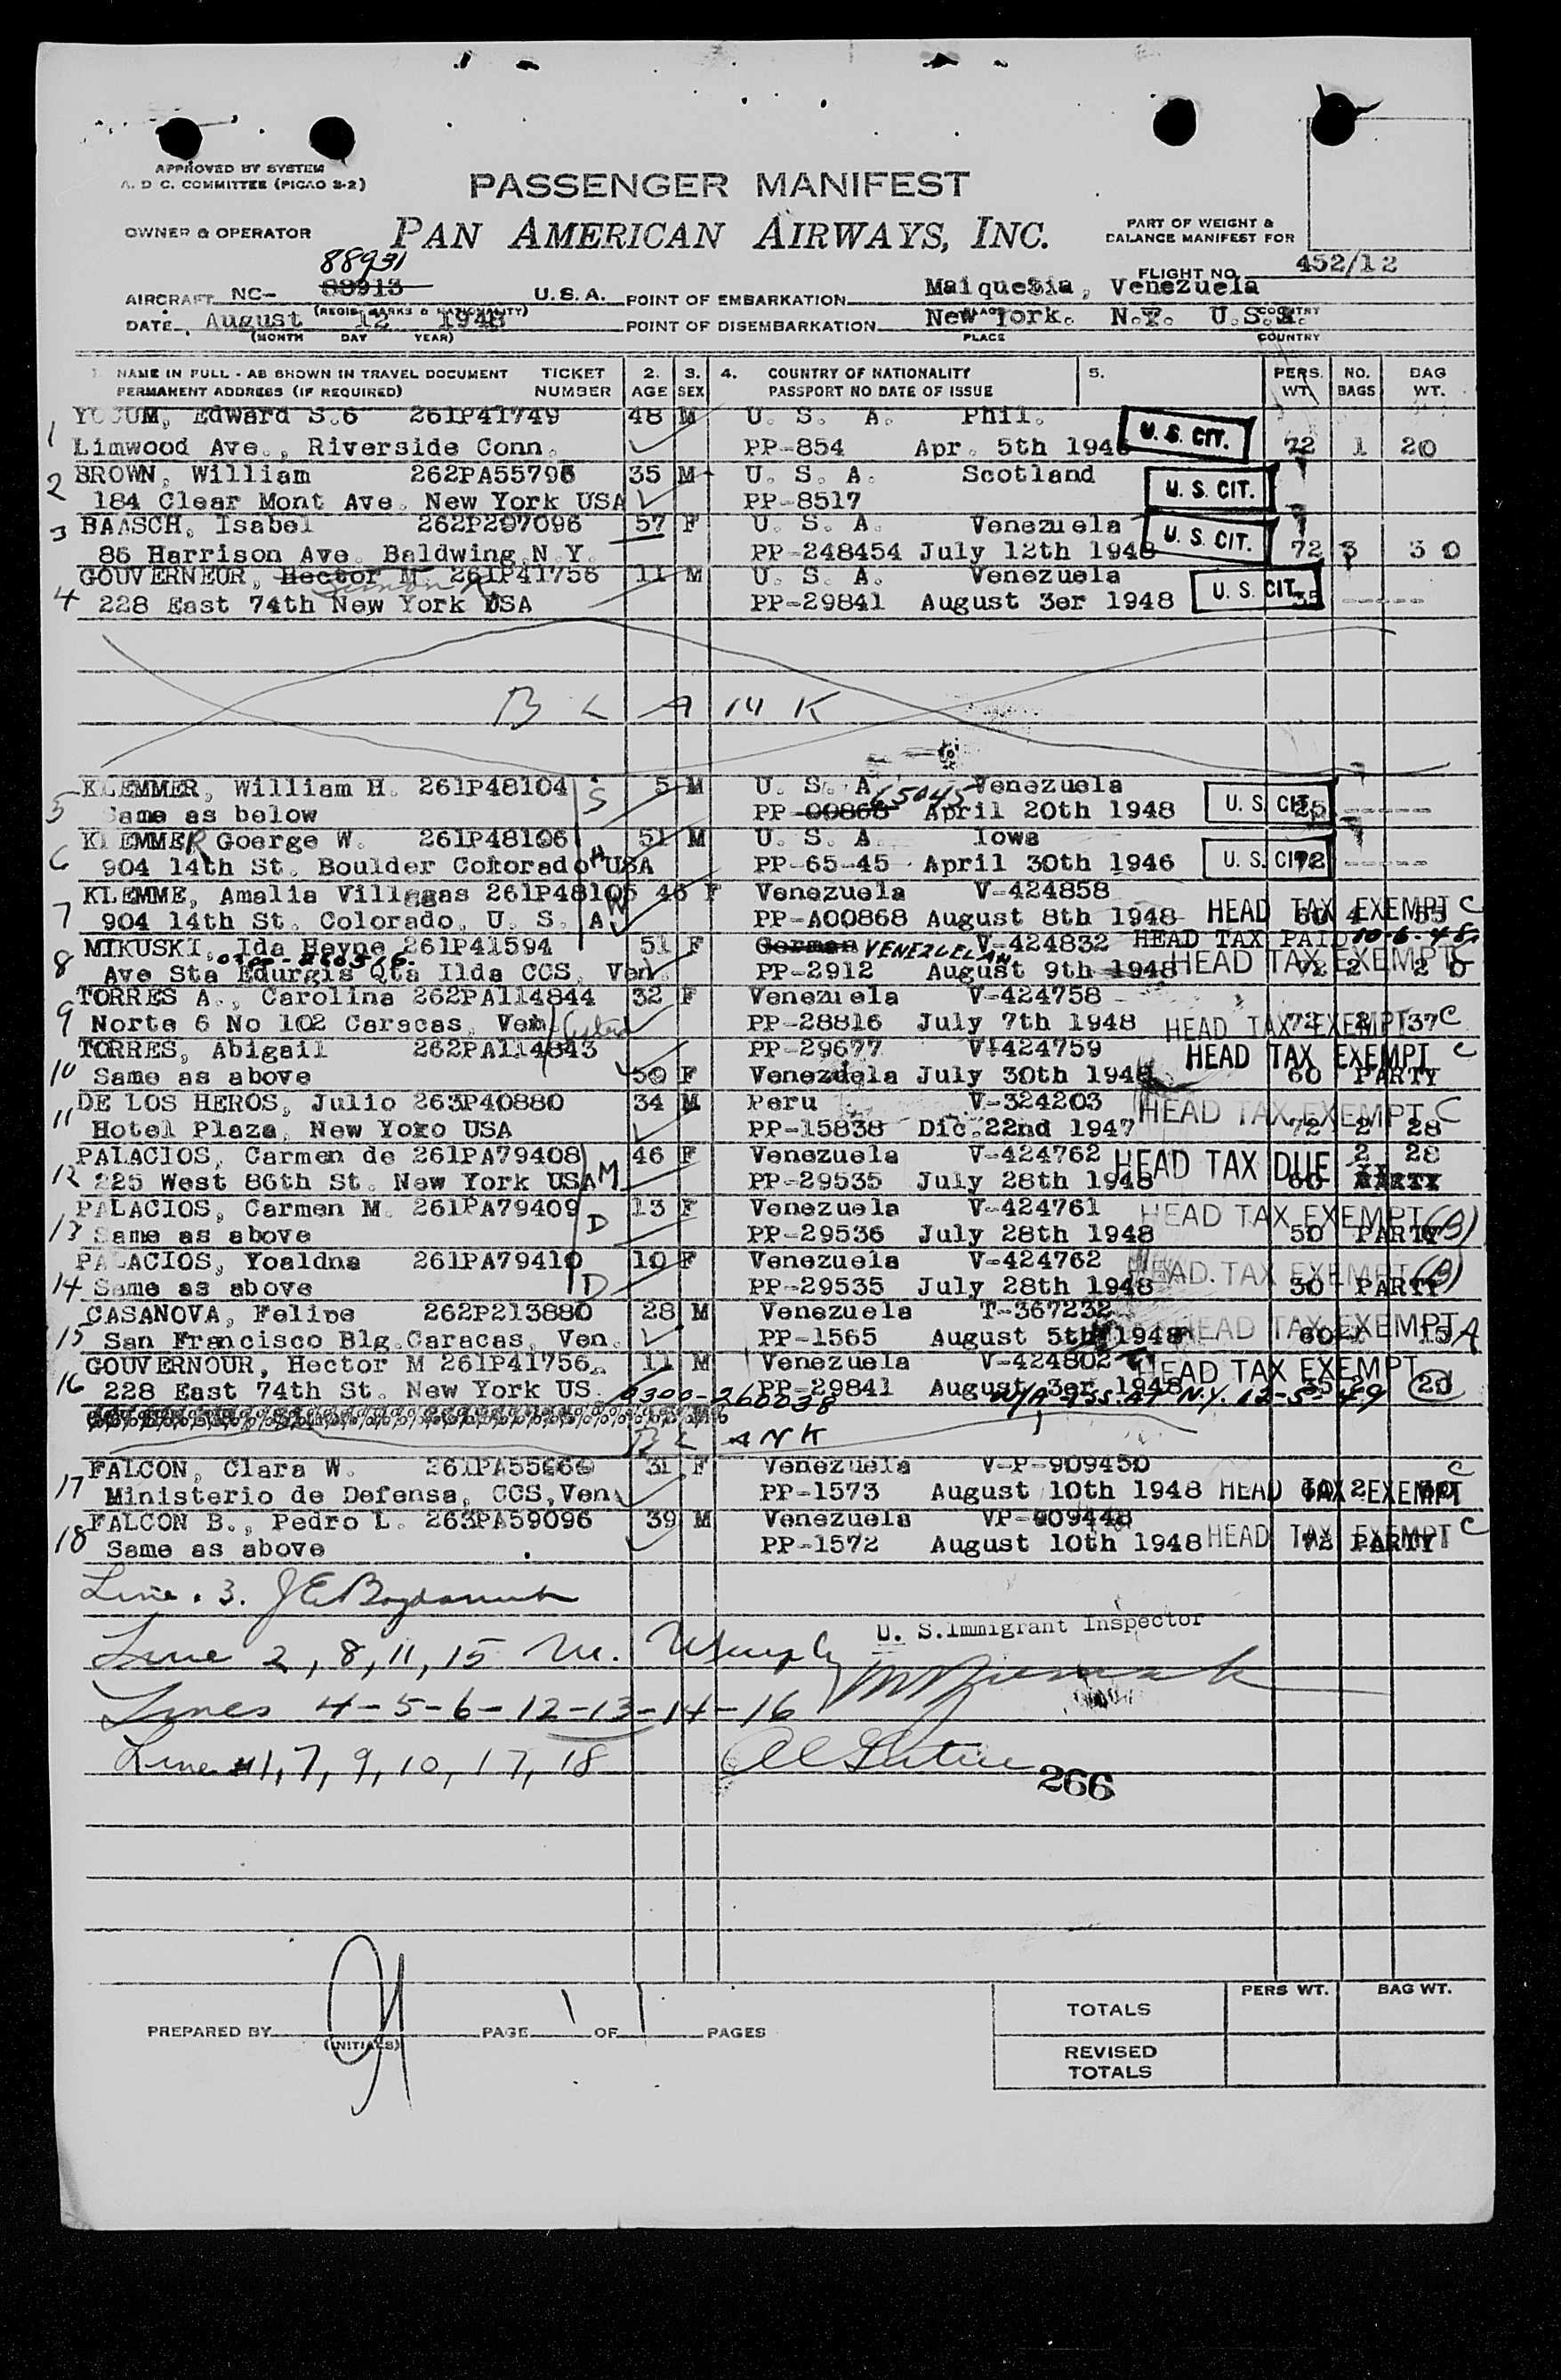 APPROVED BY SYSTEM
A. D C. COMMITTEE (PICAO S-2)
PASSENGER MANIFEST
OWNER & OPERATOR
PAN AMERICAN AIRWAYS, INC.
PART OF WEIGHT &
BALANCE MANIFEST FOR
88931
FLIGHT NO. 452/12
AIRCRAFT NC- 88913 U.S.A. POINT OF EMBARKATION Maiquetia, Venezuela
(REGIS. MARKS & NATIONALITY)
DATE August 12 1948 POINT OF DISEMBARKATION New York. N.Y. U.S.A.
(MONTH DAY YEAR) PLACE COUNTRY
1. NAME IN FULL - AS SHOWN IN TRAVEL DOCUMENT TICKET 2. 3. 4. COUNTRY OF NATIONALITY 5. PERS. NO. BAG
PERMANENT ADDRESS (IF REQUIRED) NUMBER AGE SEX PASSPORT NO DATE OF ISSUE WT. BAGS WT.
YOCUM, Edward S.6 261P41749 48 M U. S. A. Phil. U. S. CIT.
1 Limwood Ave., Riverside Conn. PP-854 Apr. 5th 194 72 1 20
BROWN, William 262PA55796 35 M U. S. A. Scotland
2 184 Clear Mont Ave. New York USA PP-8517 U. S. CIT.
3 BAASCH, Isabel 262P207096 57 F U. S. A. Venezuela U. S. CIT.
86 Harrison Ave. Baldwing N.Y. PP-248454 July 12th 1948 72 3 30
GOUVERNEUR, Hector M 261P41756 11 M U. S. A. Venezuela
4 228 East 74th New York USA PP-29841 August 3er 1948 U. S. CIT. 35 -----
BLANK
KLEMMER, William H. 261P48104 S 5 M U. S. A. Venezuela
5 Same as below PP-00868 65045 April 20th 1948 U. S. CIT. 25 -----
KLEMMER Goerge W. 261P48106 51 M U. S. A. Iowa
6 904 14th St. Boulder Cokorado USA H PP-65-45 April 30th 1946 U. S. CIT. 72 -----
KLEMME, Amalia Villegas 261P48105 46 F Venezuela V-424858
7 904 14th St. Colorado, U. S. A W PP-A00868 August 8th 1948 HEAD TAX EXEMPT C 60 4 55
MIKUSKI, Ida Heyne 261P41594 51 F German VENEZUELAN V-424832 HEAD TAX PAID 10-6-48
8 Ave Sta Edurgis Qta Ilda CCS, Ven. PP-2912 August 9th 1948 HEAD TAX EXEMPT C 72 2 20
TORRES A., Carolina 262PA114844 32 F Venezuela V-424758
9 Norte 6 No 102 Caracas, Ven. PP-28816 July 7th 1948 HEAD TAX EXEMPT C 72 2 37
TORRES, Abigail 262PA114843 PP-29677 V-424759 HEAD TAX EXEMPT C
10 Same as above 50 F Venezuela July 30th 1948 60 PARTY
DE LOS HEROS, Julio 263P40880 34 M Peru V-324203 HEAD TAX EXEMPT C
11 Hotel Plaza, New Yoro USA PP-15838 Dic. 22nd 1947 72 2 28
PALACIOS, Carmen de 261PA79408 46 F Venezuela V-424762 HEAD TAX DUE 2 28
12 225 West 86th St. New York USA M PP-29535 July 28th 1948 60
PALACIOS, Carmen M. 261PA79409 13 F Venezuela V-424761 HEAD TAX EXEMPT (B)
13 Same as above D PP-29536 July 28th 1948 50 PARTY
PALACIOS, Yoaldna 261PA79410 10 F Venezuela V-424762 HEAD TAX EXEMPT (B)
14 Same as above D PP-29535 July 28th 1948 30 PARTY
CASANOVA, Felipe 262P213880 28 M Venezuela T-367232
15 San Francisco Blg. Caracas, Ven. PP-1565 August 5th 1948 HEAD TAX EXEMPT A 60 15
GOUVERNOUR, Hector M 261P41756 11 M Venezuela V-424802 HEAD TAX EXEMPT
16 228 East 74th St. New York US. 0300-260038 PP-29841 August 3er 1948 35 2 20
BLANK
FALCON, Clara W. 261PA55660 31 F Venezuela V-P-909450 C
17 Ministerio de Defensa, CCS, Ven. PP-1573 August 10th 1948 HEAD TAX EXEMPT 60 2
FALCON B., Pedro L. 263PA59096 39 M Venezuela VP-909448 C
18 Same as above PP-1572 August 10th 1948 HEAD TAX EXEMPT 72 PARTY
Line. 3.
U. S. Immigrant Inspector
Line 2, 8, 11, 15 M. Murphy
Lines 4-5-6-12-13-14-16
Line #1, 7, 9, 10, 17, 18
266
PREPARED BY (INITIALS) PAGE 1 OF 1 PAGES
PERS WT. BAG WT.
TOTALS
REVISED
TOTALS